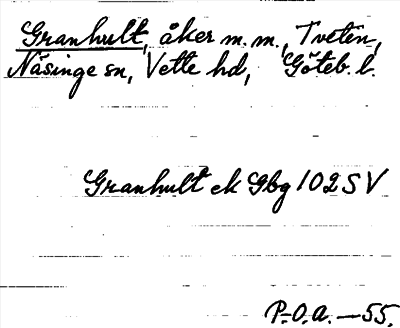 Granhult, åker m.m., Tveten,
Näsinge sn, Vette hd, Göteb. l.
Granhult ek Gbg 102 S V
P.O.A. — 55.